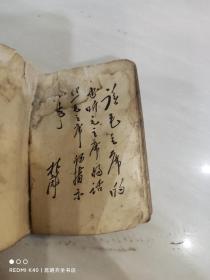 读毛主席的
书听毛主席的话
照毛主席的指示
办事
林彪
REDMI K40 | 昆明齐全书店